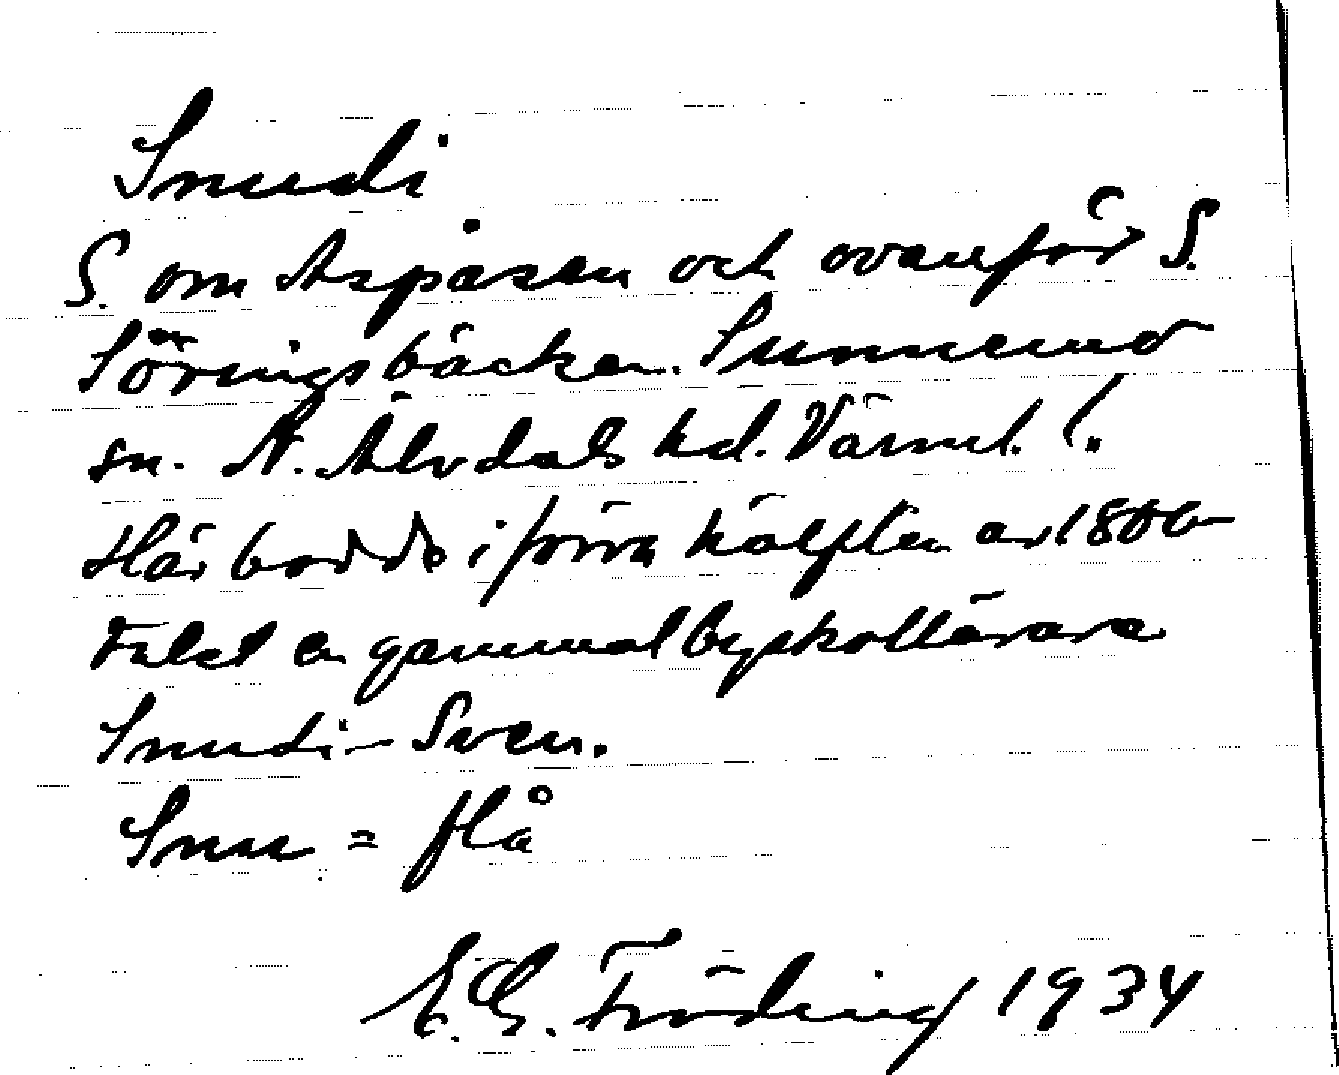 Snudi
S. om Aspåsen och ovanför S.
Lövingsbäcken. Sunnemo
sn. N. Älvdals hd. Värml. l.
Här bodde i förra hälften av 1800-
talet en gammal byskollärare
Snudi-Sven.
Snu = flå
E. G. Fröding 1934